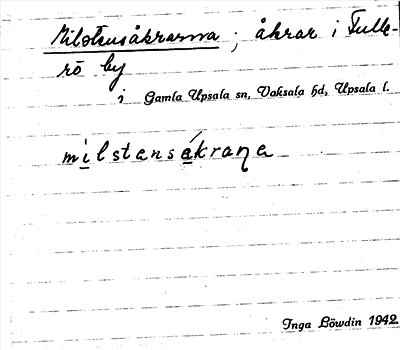 Milstensåkrarna ; åkrar i Fulle-
rö by
i Gamla Upsala sn, Vaksala hd, Upsala l.
mi̲lstensá̲kraṇa
Inga Löwdin 1942.